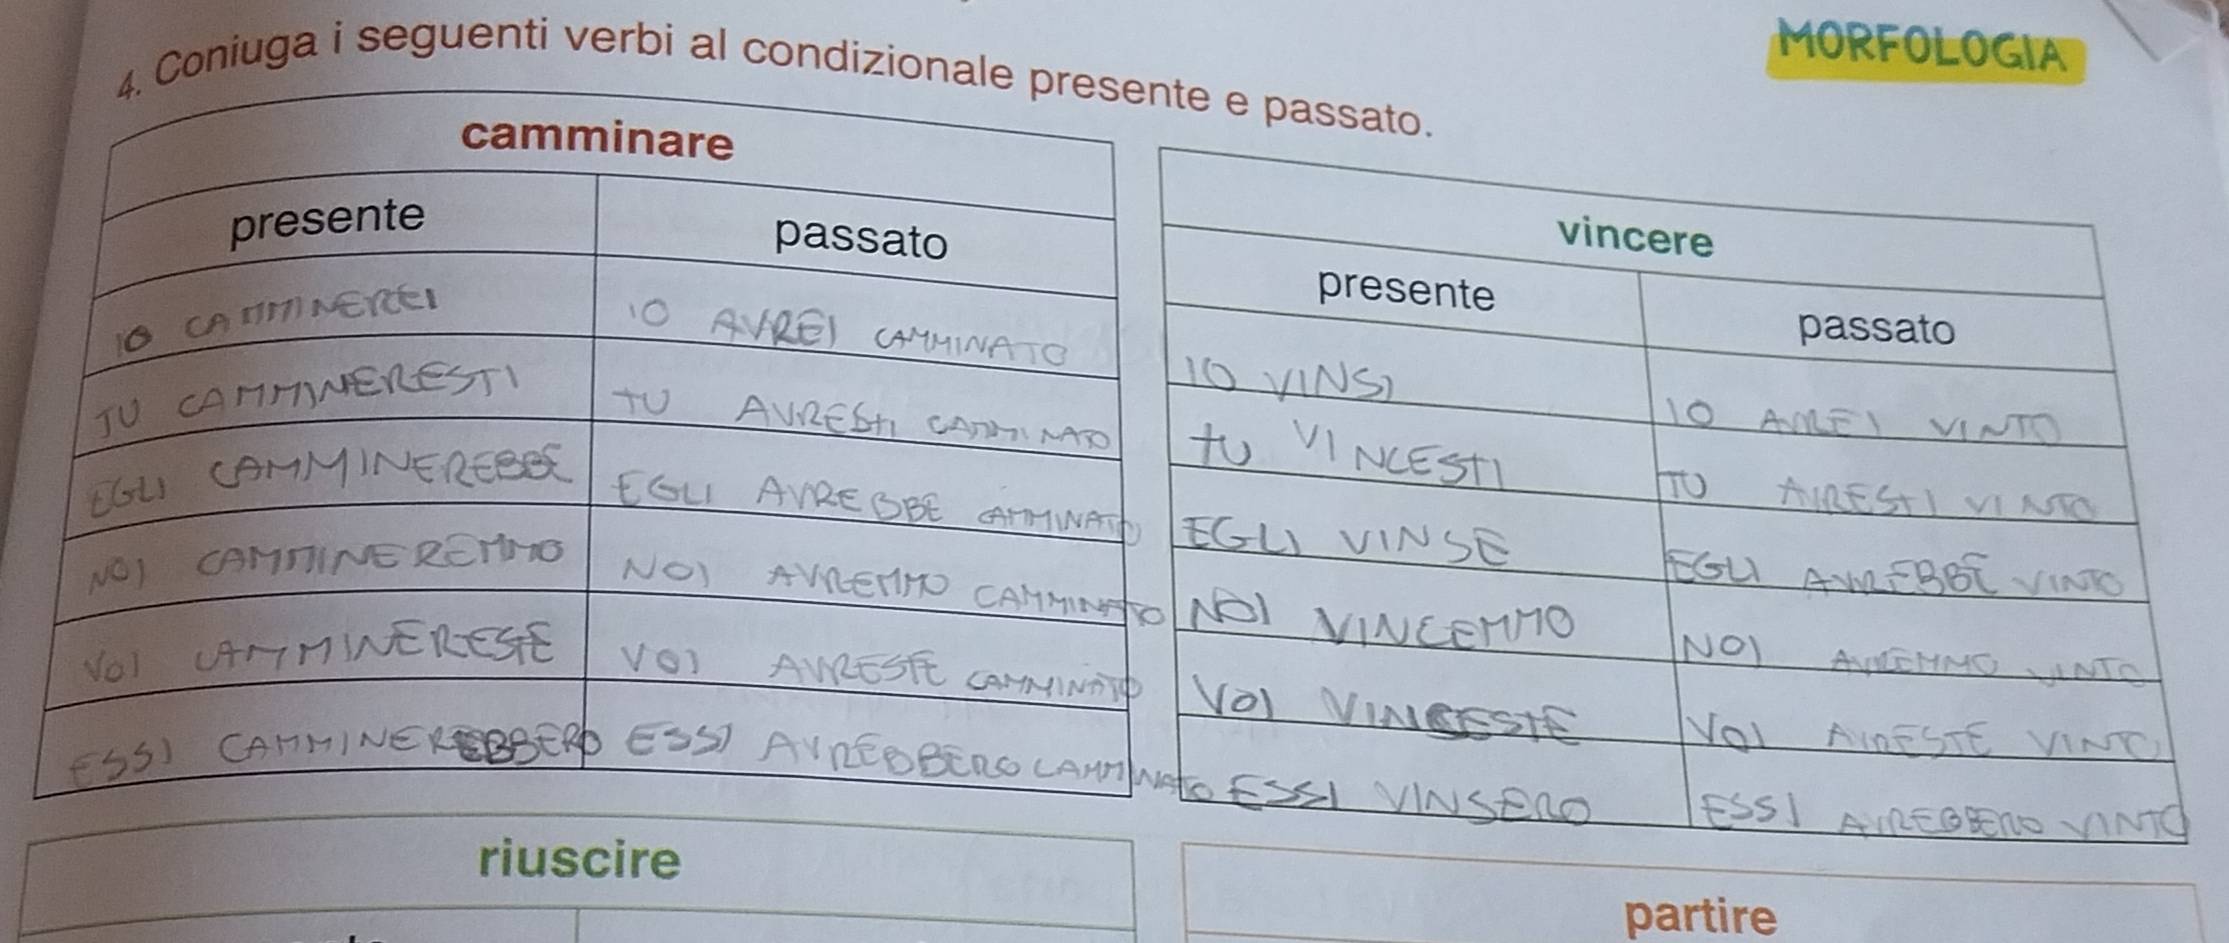 MORFOLOGIA
4. Coniuga i seguenti verbi al condizionale presente e passato.
camminare
presente passato
IO CAMMINEREI IO AVREI CAMMINATO
TU CAMMINERESTI TU AVRESTI CAMMINATO
EGLI CAMMINEREBBE EGLI AVREBBE CAMMINATO
NOI CAMMINEREMMO NOI AVREMMO CAMMINATO
VOI CAMMINERESTE VOI AVRESTE CAMMINATO
ESSI CAMMINEREBBERO ESSI AVREBBERO CAMMINATO
vincere
presente passato
IO VINSI IO AVREI VINTO
TU VINCESTI TU AVRESTI VINTO
EGLI VINSE EGLI AVREBBE VINTO
NOI VINCEMMO NOI AVREMMO VINTO
VOI VINCESTE VOI AVRESTE VINTO
ESSI VINSERO ESSI AVREBBERO VINTO
riuscire
partire